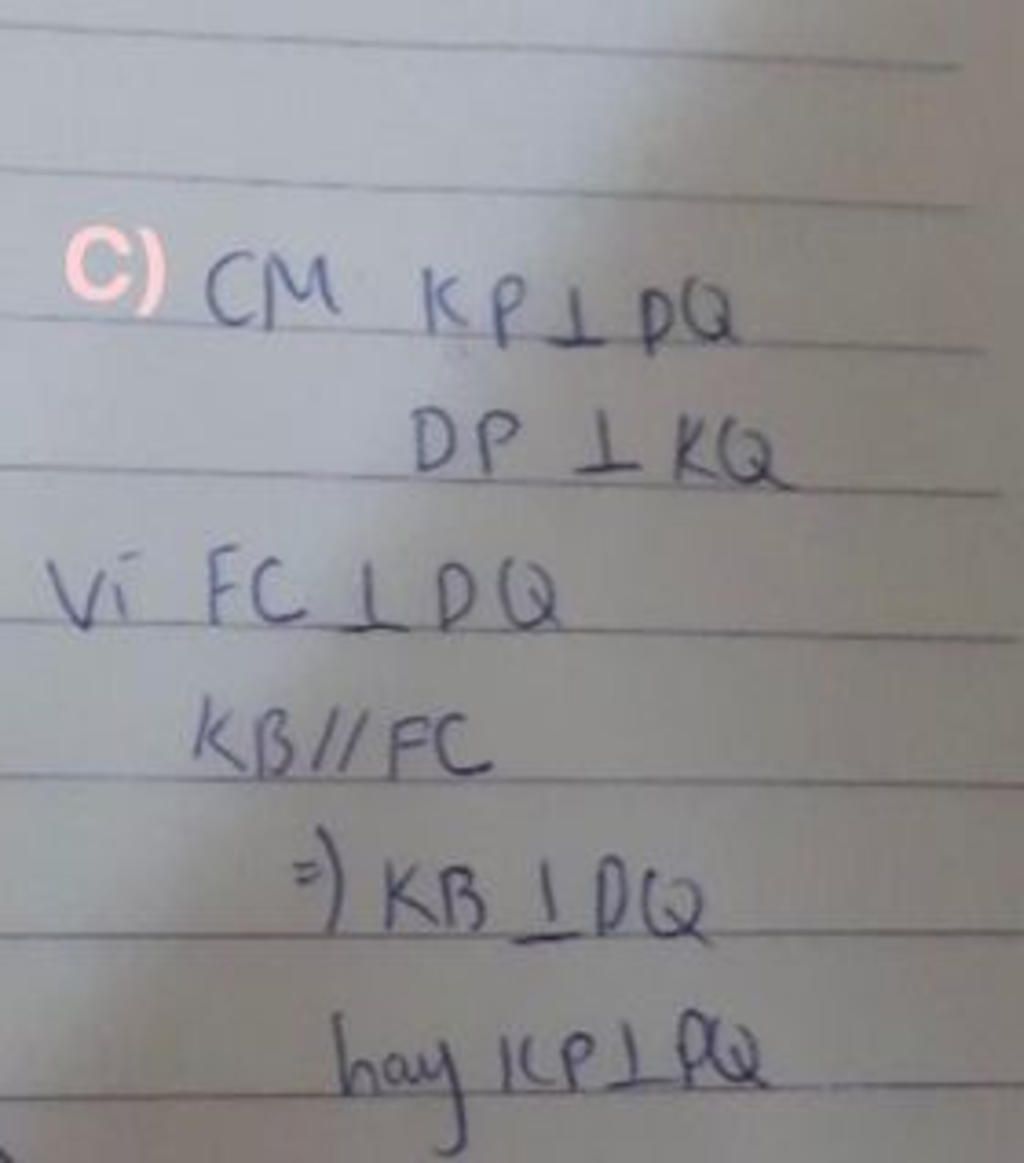 C) CM KP ⊥ DQ
DP ⊥ KQ
Vì FC ⊥ DQ
KB // FC
=) KB ⊥ DQ
hay KP ⊥ DQ